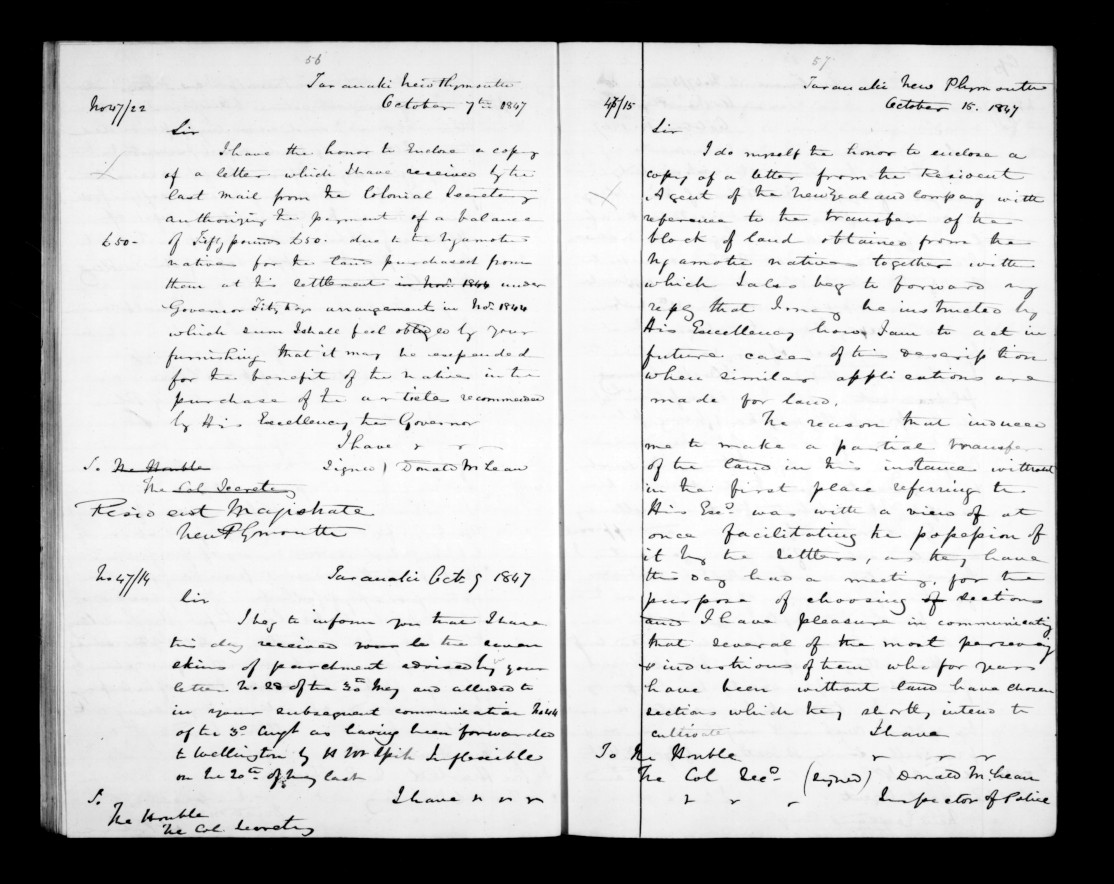 56
Taranaki New Plymouth
No 47/22 October 7th 1847
Sir
I have the honor to enclose a copy
of a letter which I have received by the
last mail from the Colonial Secretary
authorizing the payment of a balance
£50- of Fifty pounds £50- due to the Ngamotu
natives for the land purchased from
them at his settlement in Novr 1844 under
Governor Fitzroys arrangement in Novr 1844
which sum I shall feel obliged by your
furnishing that it may be expended
for the benefit of the natives in the
purchase of the articles recommended
by His Excellency the Governor
I have
Signed) Donald McLean
To The Honble
The Col Secretary
Resident Magistrate
New Plymouth
No 47/14 Taranaki Octr 9 1847
Sir
I beg to inform you that I have
this day received the seven
skins of parchment advised by your
letter No 28 of the 30th May and alluded to
in your subsequent communication No 44
of the 3d Augt as having been forwarded
to Wellington by H M Ship Inflexible
on the 20th of last
I have
To
The Honble
The Col. Secretary
57
Taranaki New Plymouth
47/15 October 15. 1847
Sir
I do myself the honor to enclose a
copy of a letter from the Resident
Agent of the New Zealand Company with
reference to the transfer of the
block of land obtained from the
Ngamotu natives together with
which I also beg to forward my
reply that I may be instructed by
His Excellency how I am to act in
future cases of this description
when similar applications are
made for land.
The reason that induced
me to make a partial transfer
of the land in this instance without
in the first place referring to
His Excy was with a view of at
once facilitating the possession of
it by the settlers as they have
this day had a meeting, for the
purpose of choosing of sections
and I have pleasure in communicating
that several of the most persevering
& industrious of them who for years
have been without land have chosen
sections which they shortly intend to
cultivate I have
To The Honble
The Col Secy (signed) Donald McLean
Inspector of Police